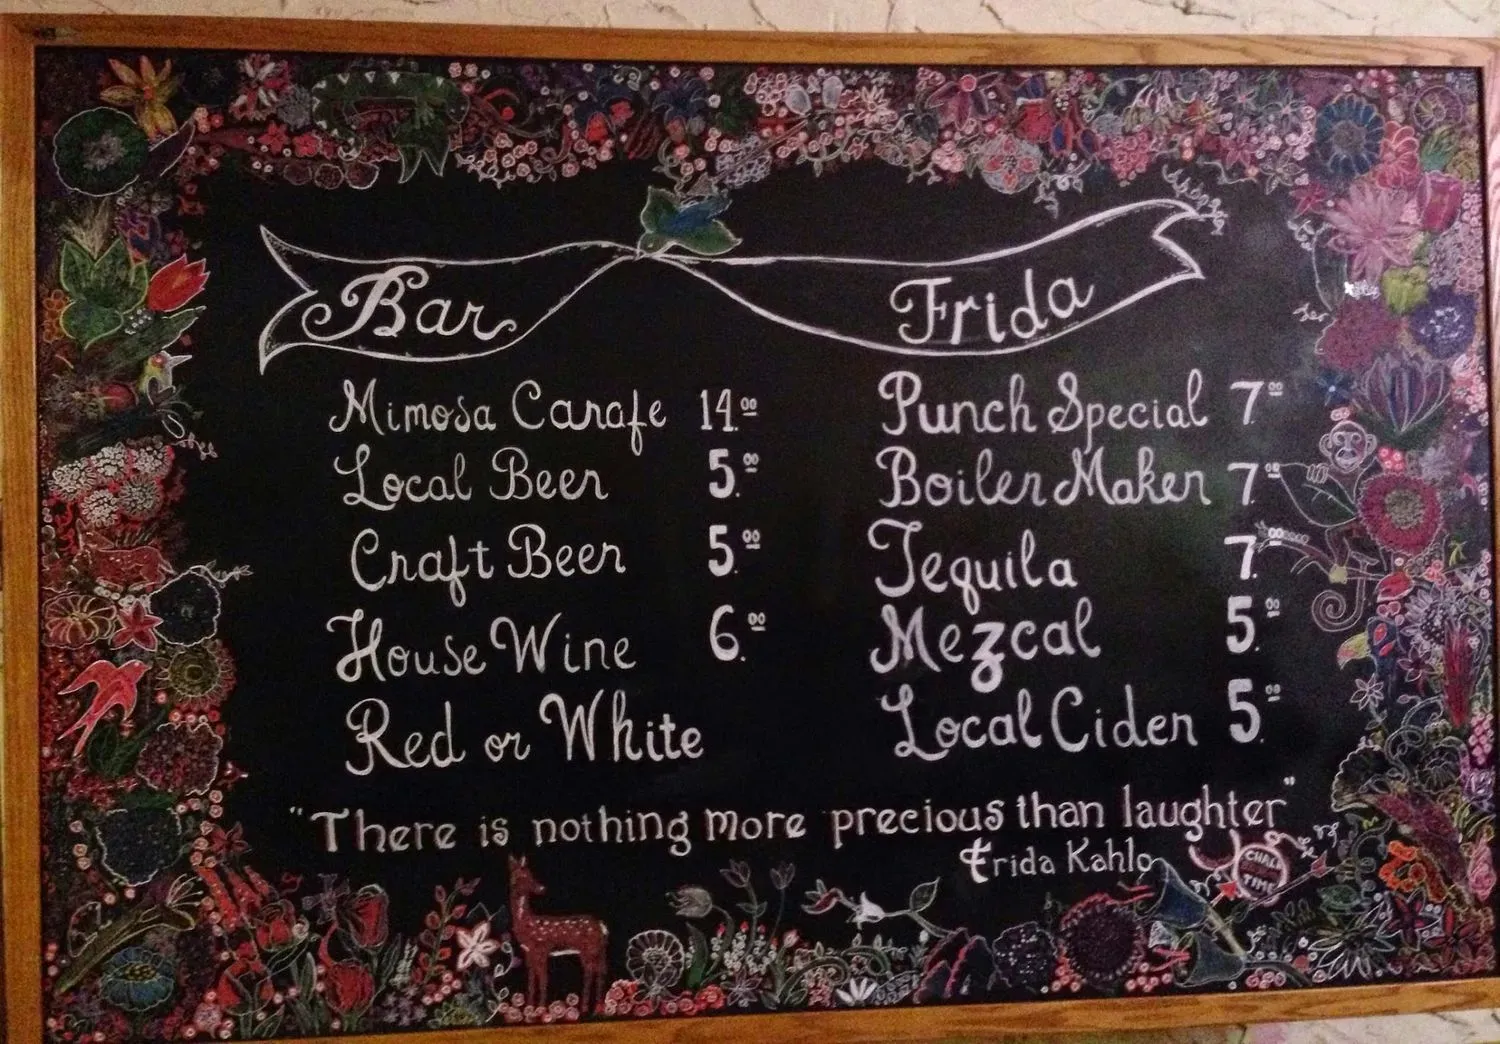 Bar Frida
Mimosa Carafe 14.00
Local Beer 5.00
Craft Beer 5.00
House Wine 6.00
Red or White
Punch Special 7.00
Boiler Maker 7.00
Tequila 7.00
Mezcal 5.00
Local Cider 5.00
"There is nothing more precious than laughter"
Frida Kahlo
CHALK
TIME